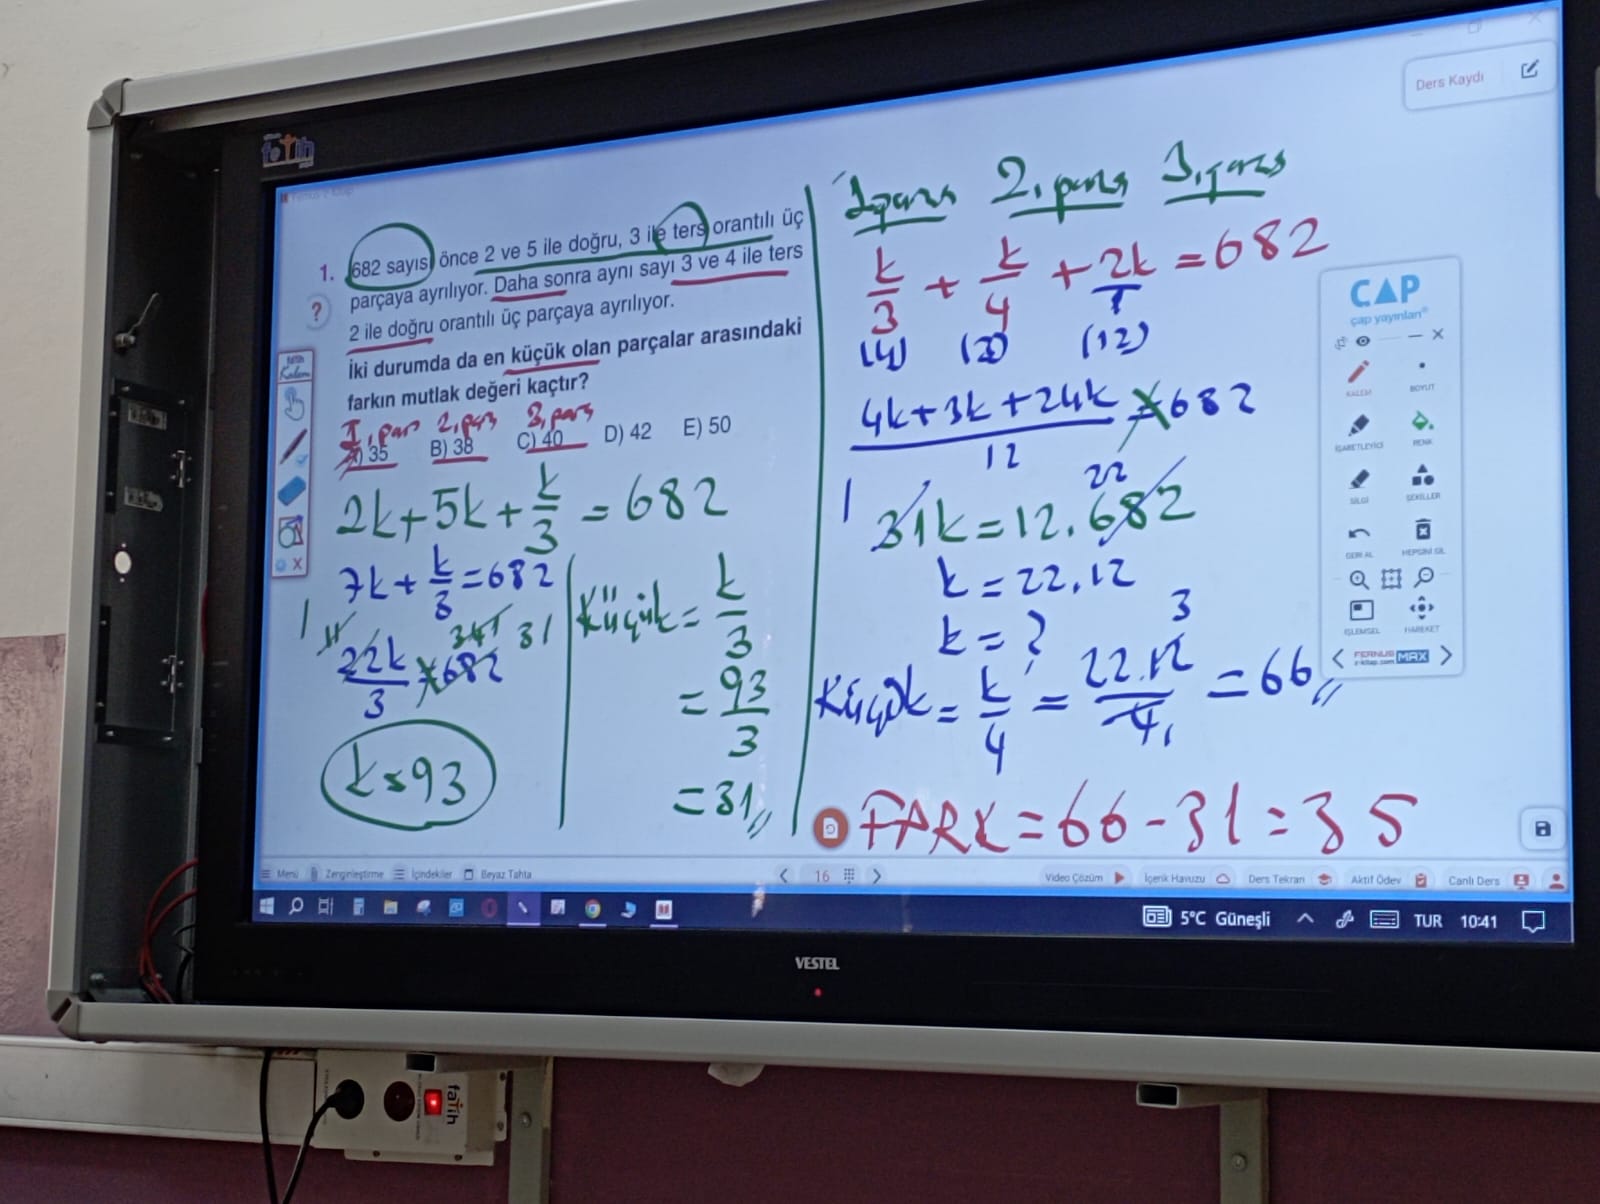 fatih
Ders Kaydı
1. 682 sayısı önce 2 ve 5 ile doğru, 3 ile ters orantılı üç
parçaya ayrılıyor. Daha sonra aynı sayı 3 ve 4 ile ters
2 ile doğru orantılı üç parçaya ayrılıyor.
İki durumda da en küçük olan parçalar arasındaki
farkın mutlak değeri kaçtır?
1. parç 2. parç 3. parç
A) 35 B) 38 C) 40 D) 42 E) 50
2k+5k+k/3=682
7k+k/3=682
1 11 341 31
22k/3=682
k=93
Küçük=k/3
=93/3
=31
1. parça 2. parça 3. parça
k/3+k/4+2k/1=682
(4) (3) (12)
4k+3k+24k/12=682
1 22
31k=12.682
k=22.12
k=?
3
Küçük=k/4=22.12/4=66
1
FARK=66-31=35
fatih
Kalem
?
CAP
çap yayınları
KALEM BOYUT
İŞARETLEYİCİ RENK
SİLGİ ŞEKİLLER
GERİ AL HEPSİNİ SİL
İŞLEMSEL HAREKET
FERNUS
z-kitap.com MAX
Menü Zenginleştirme İçindekiler Beyaz Tahta
16
Video Çözüm İçerik Havuzu Ders Tekrarı Aktif Ödev Canlı Ders
5°C Güneşli TUR 10:41
VESTEL
fatih